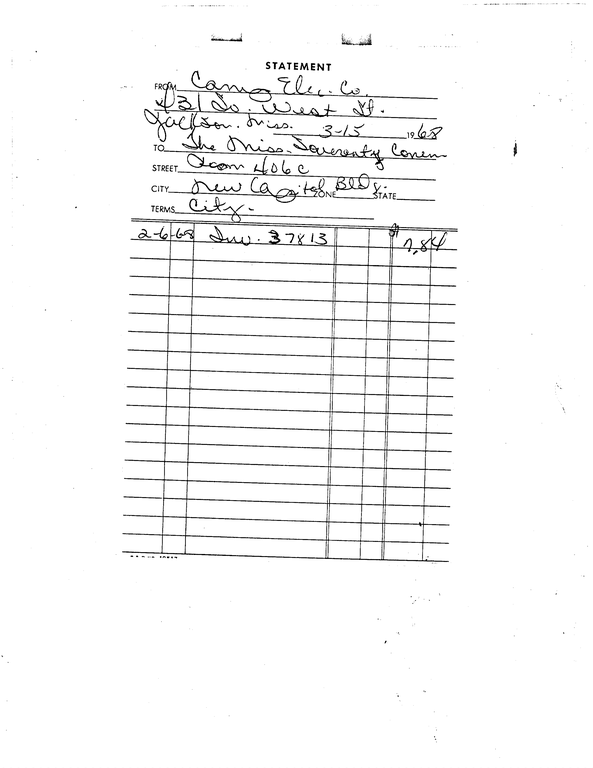 STATEMENT
FROM Camp Elec. Co.
431 So. West St.
Jackson. Miss. 3-15 1968
TO The Miss. Soverenty Comm
STREET Room 406 C
CITY New Capitol Bldg. ZONE STATE
TERMS City -
2-6-68 Inv. 37813 $ 7.84